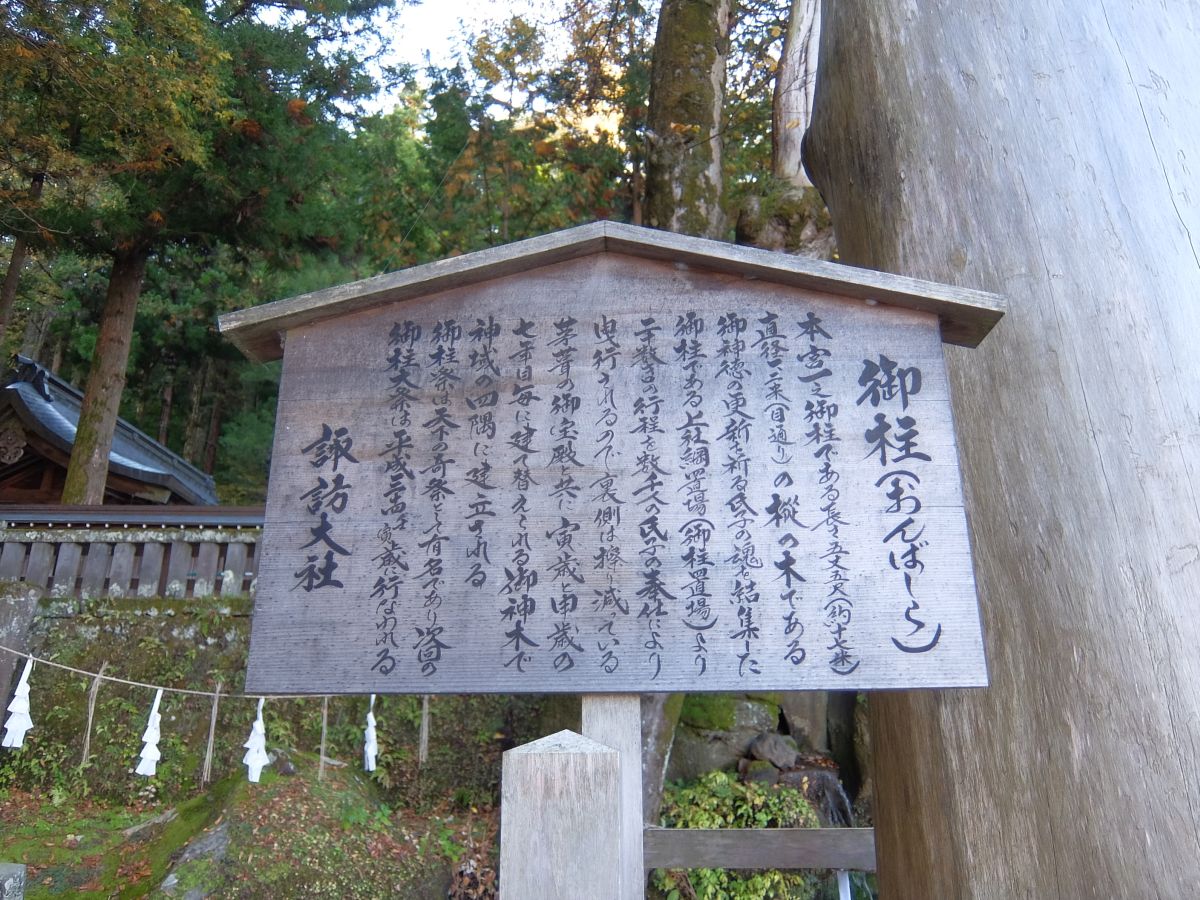 御柱（おんばしら）
本宮一之御柱である長さ五丈五尺（約十七米）
直径一二米（目通り）の樅の木である
御神徳の更新を祈る氏子の魂を結集した
御柱である上社綱置場（御柱置場）より
二十数キロの行程を数千人の氏子の奉仕により
曳行されるので裏側は擦り減っている
茅葺の御宝殿と共に寅歳と申歳の
七年目毎に建て替えられる御神木で
神域の四隅に建立される
御柱祭は天下の奇祭として有名であり次回の
御柱大祭は平成三十四年寅歳に行なわれる
諏訪大社